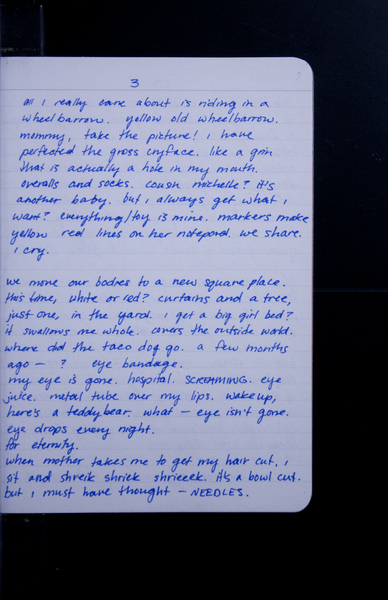 3
all i really care about is riding in a
wheelbarrow. yellow old wheelbarrow.
mommy, take the picture! i have
perfected the gross cryface. like a grin
that is actually a hole in my mouth.
overalls and socks. cousin michelle? it's
another baby. but i always get what i
want? everything/toy is mine. markers make
yellow red lines on her notepad. we share.
i cry.
we move our bodies to a new square place.
this time, white or red? curtains and a tree,
just one, in the yard. i get a big girl bed?
it swallows me whole. covers the outside world.
where did the taco dog go. a few months
ago — ? eye bandage.
my eye is gone. hospital. SCREAMING. eye
juice. metal tube over my lips. wake up,
here's a teddy bear. what — eye isn't gone.
eye drops every night.
for eternity.
when mother takes me to get my hair cut, i
sit and shreik shriek shrieeek. it's a bowl cut.
but i must have thought — NEEDLES.